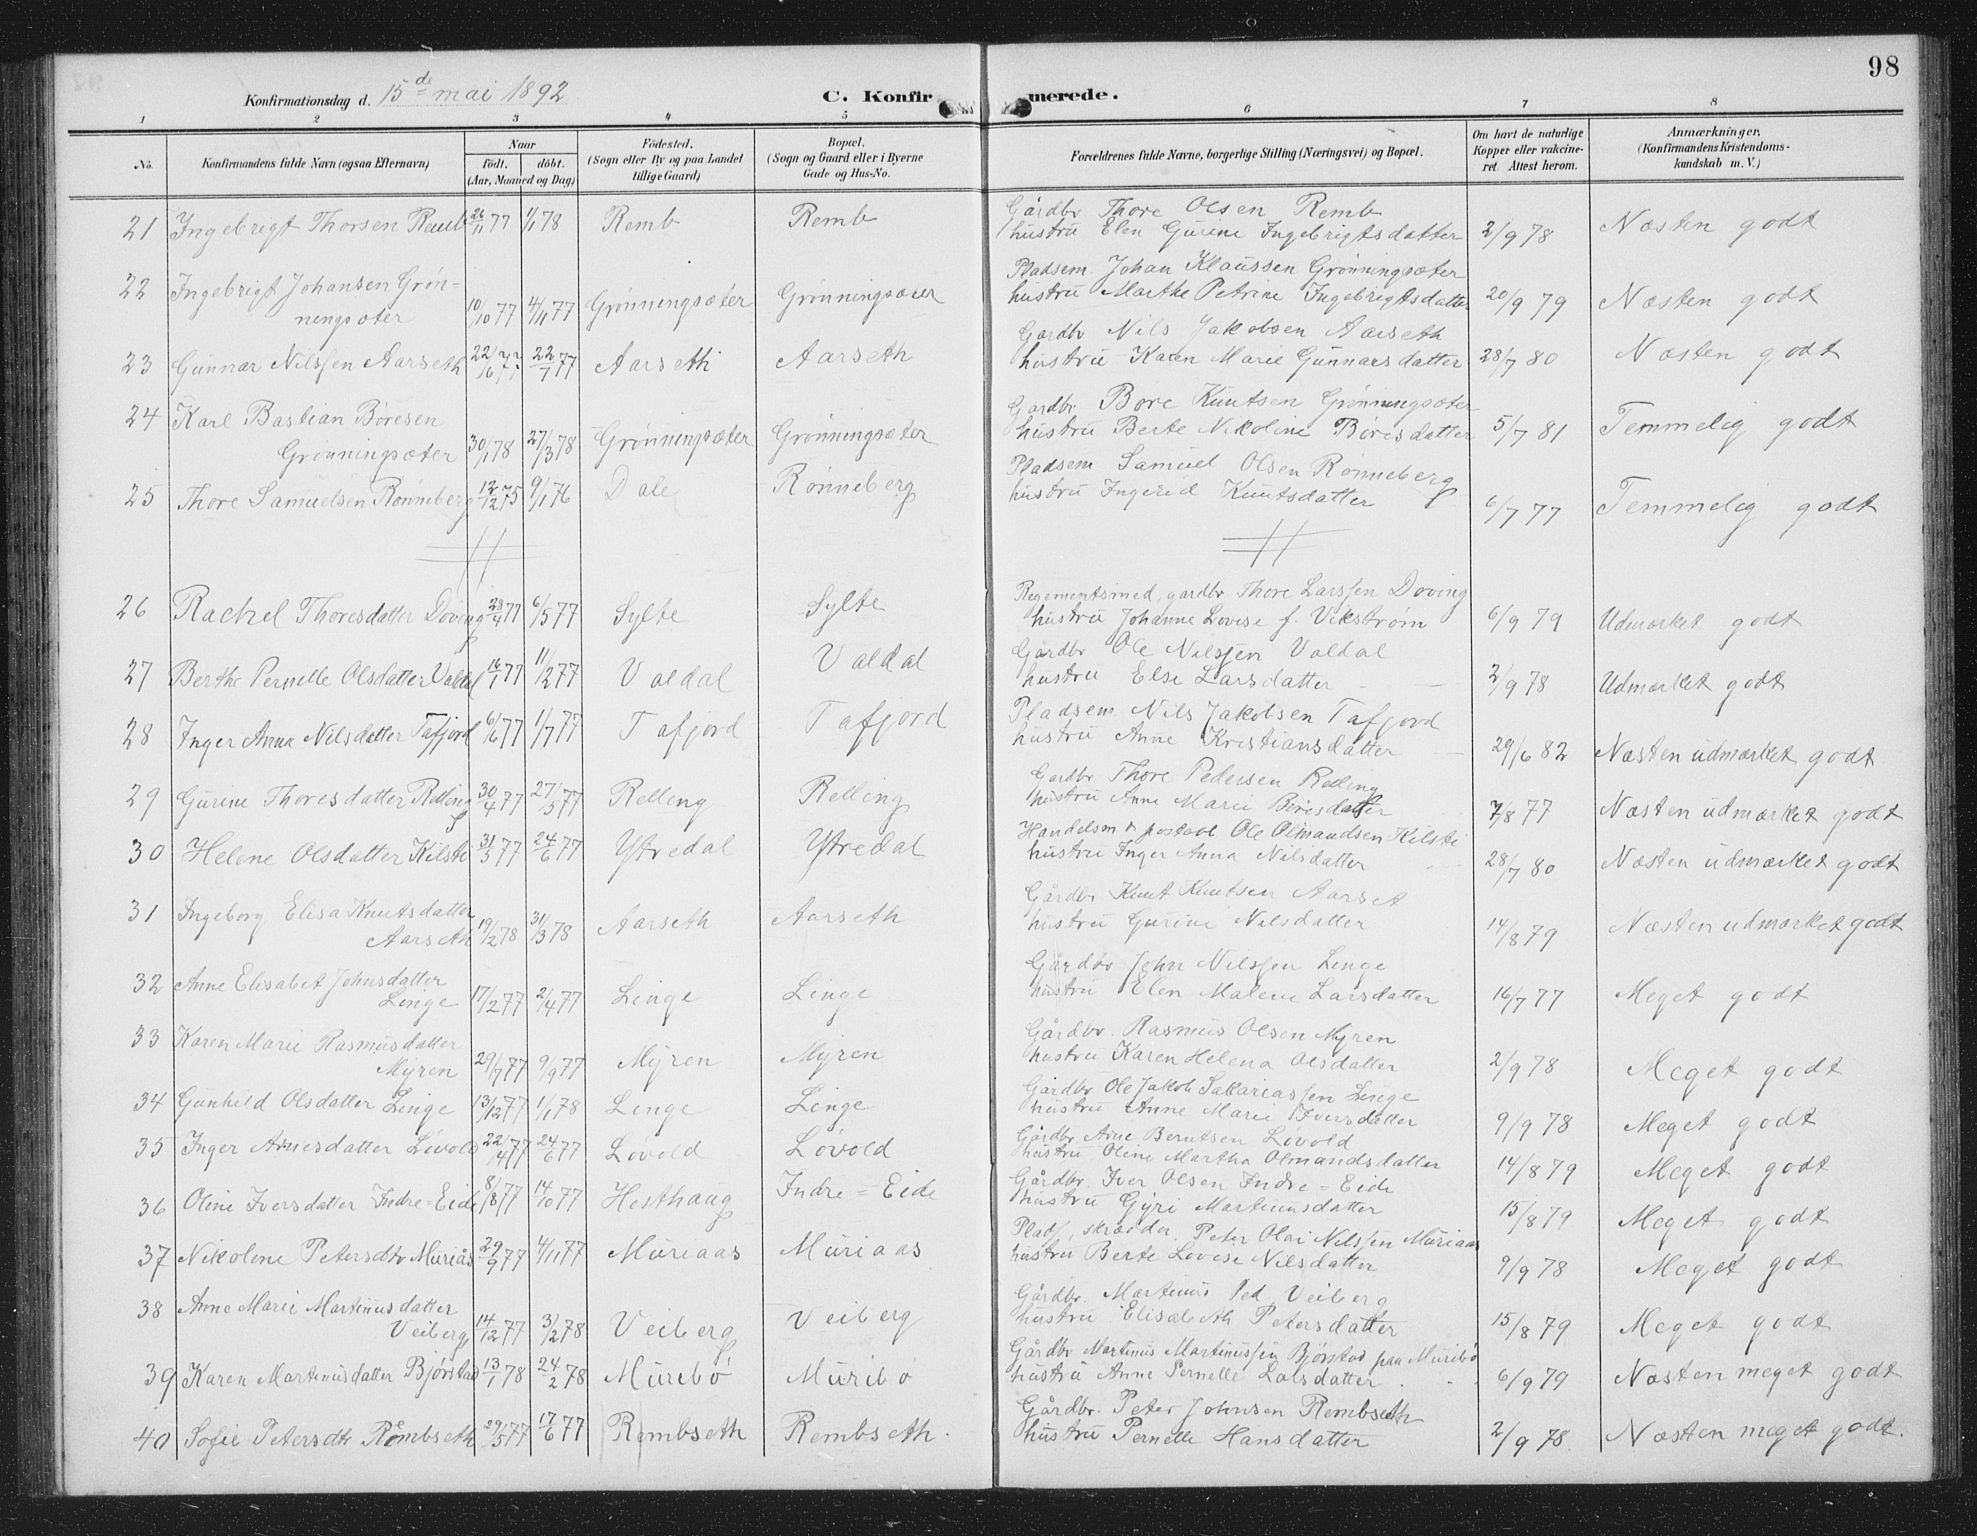 98
Konfirmationsdag d. 15de mai 1892
C. Konfirmerede.
1 2 3 4 5 6 7 8
No. Konfirmandens fulde Navn (ogsaa Efternavn) Naar født. døbt. (Aar, Maaned og Dag) Fødested. (Sogn eller By og paa Landet tillige Gaard) Bopæl. (Sogn og Gaard eller i Byerne Gade og Hus-No. Forældrenes fulde Navne, borgerlige Stilling (Næringsvei) og Bopæl. Om havt de naturlige Kopper eller vakcineret. Attest herom. Anmærkninger. (Konfirmandens Kristendomskundskab m. V.)
21 Ingebrigt Thorsen Remb 26/11 77 1/1 78 Remb Remb Gårdbr Thore Olsen Remb
hustru Elen Gurine Ingebrigtsdatter 2/9 78 Næsten godt
22 Ingebrigt Johansen Grøn= Pladsem. Johan Klaussen Grønningsæter
ningsæter 10/10 77 4/11 77 Grønningsæter Grønningsæter hustru Marthe Petrine Ingebrigtsdatter 20/9 79 Næsten godt
Gardbr Nils Jakobsen Aarseth
23 Gunnar Nilssen Aarseth 22/6 77 22/7 77 Aarseth Aarseth hustru Karen Marie Gunnarsdatter 28/7 80 Næsten godt
24 Karl Bastian Børesen Gardbr Børe Knutsen Grønningsæter
Grønningsæter 30/1 78 27/3 78 Grønningsæter Grønningsæter hustru Berte Nikoline Boresdatter 5/7 81 Temmelig godt
Pladsem Samuel Olsen Rønneberg
25 Thore Samuelsen Rønneberg 12/12 75 9/1 76 Dale Rønneberg hustru Ingerid Knutsdatter 6/7 77 Temmelig godt
Regementsmed, gardbr Thore Larssen Døving
26 Rachel Thoresdatter Døving 28/4 77 6/5 77 Sylte Sylte hustru Johanne Lovise f. Vikstrøm 6/9 79 Udmærket godt
Gårdbr Ole Nilssen Valdal
27 Berthe Pernelle Olsdatter Valdal 16/1 77 11/2 77 Valdal Valdal hustru Else Larsdatter 2/9 78 Udmærket godt
Pladsem Nils Jakobsen Tafjord
28 Inger Anna Nilsdatter Tafjord 6/6 77 1/7 77 Tafjord Tafjord hustru Anne Kristiansdatter 29/6 82 Næsten udmærket godt
Gardbr Thore Pedersen Relling
29 Gurine Thoresdatter Relling 30/4 77 27/5 77 Relling Relling hustru Anne Marie 7/8 77 Næsten udmærket godt
Handelsm & Ole Olmandsen Kilsti
30 Helene Olsdatter Kilsti 31/5 77 24/6 77 Ytredal Ytredal hustru Inger Anna Nilsdatter 28/7 80 Næsten udmærket godt
31 Ingeborg Elisa Knutsdatter Gårdbr Knut Knutsen Aarset
Aarseth 19/2 78 31/3 78 Aarseth Aarseth hustru Gurine Nilsdatter 14/8 79 Næsten udmærket godt
32 Anne Elisabet Johnsdatter Gårdbr John Nilssen Linge
Linge 17/2 77 2/4 77 Linge Linge hustru Elen Malene Larsdatter 16/7 77 Meget godt
33 Karen Marie Rasmusdatter Gårdbr. Rasmus Olsen Myren
Myren 29/7 77 9/9 77 Myren Myren hustru Karen Helena Olsdatter 2/9 78 Meget godt
Gårdbr Ole Jakob Sakariassen Linge
34 Gunhild Olsdatter Linge 13/12 77 1/1 78 Linge Linge hustru Anne Marie Iversdatter 9/9 78 Meget godt
Gårdbr Arne Berntsen Løvold
35 Inger Arnesdatter Løvold 22/4 77 24/6 77 Løvold Løvold hustru Oline Martha Olmandsdatter 14/8 79 Meget godt
Gårdbr. Iver Olsen Indre=Eide
36 Oline Iversdatter Indre=Eide 8/8 77 14/10 77 Hesthaug Indre=Eide hustru Gyri Martinusdatter 15/8 79 Meget godt
Plads, skrædder, Peter Olai Nilssen Muriaas
37 Nikoline Petersdtr Muriås 29/9 77 4/11 77 Muriaas Muriaas hustru Berte Lovise Nilsdatter 9/9 78 Meget godt
38 Anne Marie Martinusdatter Gårdbr. Martinus Ped Veiberg
Veiberg 14/12 77 3/2 78 Veiberg Veiberg hustru Elisabeth Petersdatter 15/8 79 Meget godt
Gårdbr Martinus Martinussen Bjørstad paa Muribø
39 Karen Martinusdatter Bjørstad 13/1 78 24/2 78 Muribø Muribø hustru Anne Pernelle 6/9 79 Næsten meget godt
Gårdbr. Peter Johnsen Rembseth
40 Sofie Petersdtr Rembseth 29/5 77 17/6 77 Rembseth Rembseth. hustru Pernelle Hansdatter 2/9 78. Næsten meget godt.